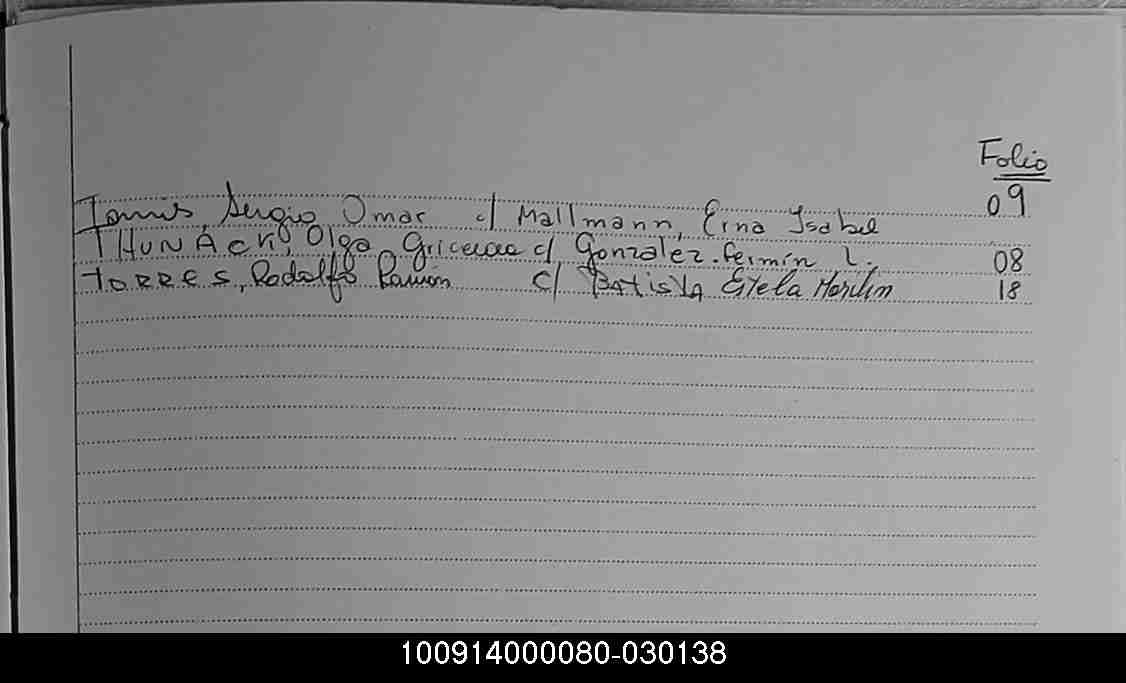 Folio
Sergio Omar c/ Mallmann, Erna Isabel 09
THUNÁCK, Olga c/ Gonzalez. Fermín L. 08
TORRES, Rodolfo Ramón c/ BAtistA Estela 18
100914000080-030138